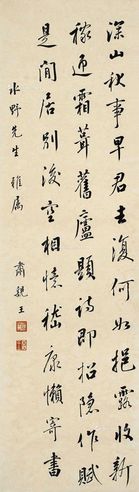 深山秋事早君去復何如挹露收新
稼迎霜葺舊廬題詩即招隱作賦
是閒居別後空相憶嵇康懶寄書
水野先生 雅屬
肅親王